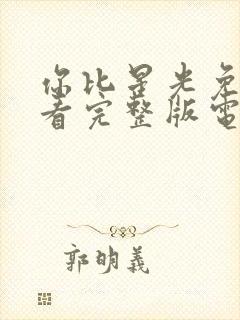 你比星光免
看完整版電
郭明義